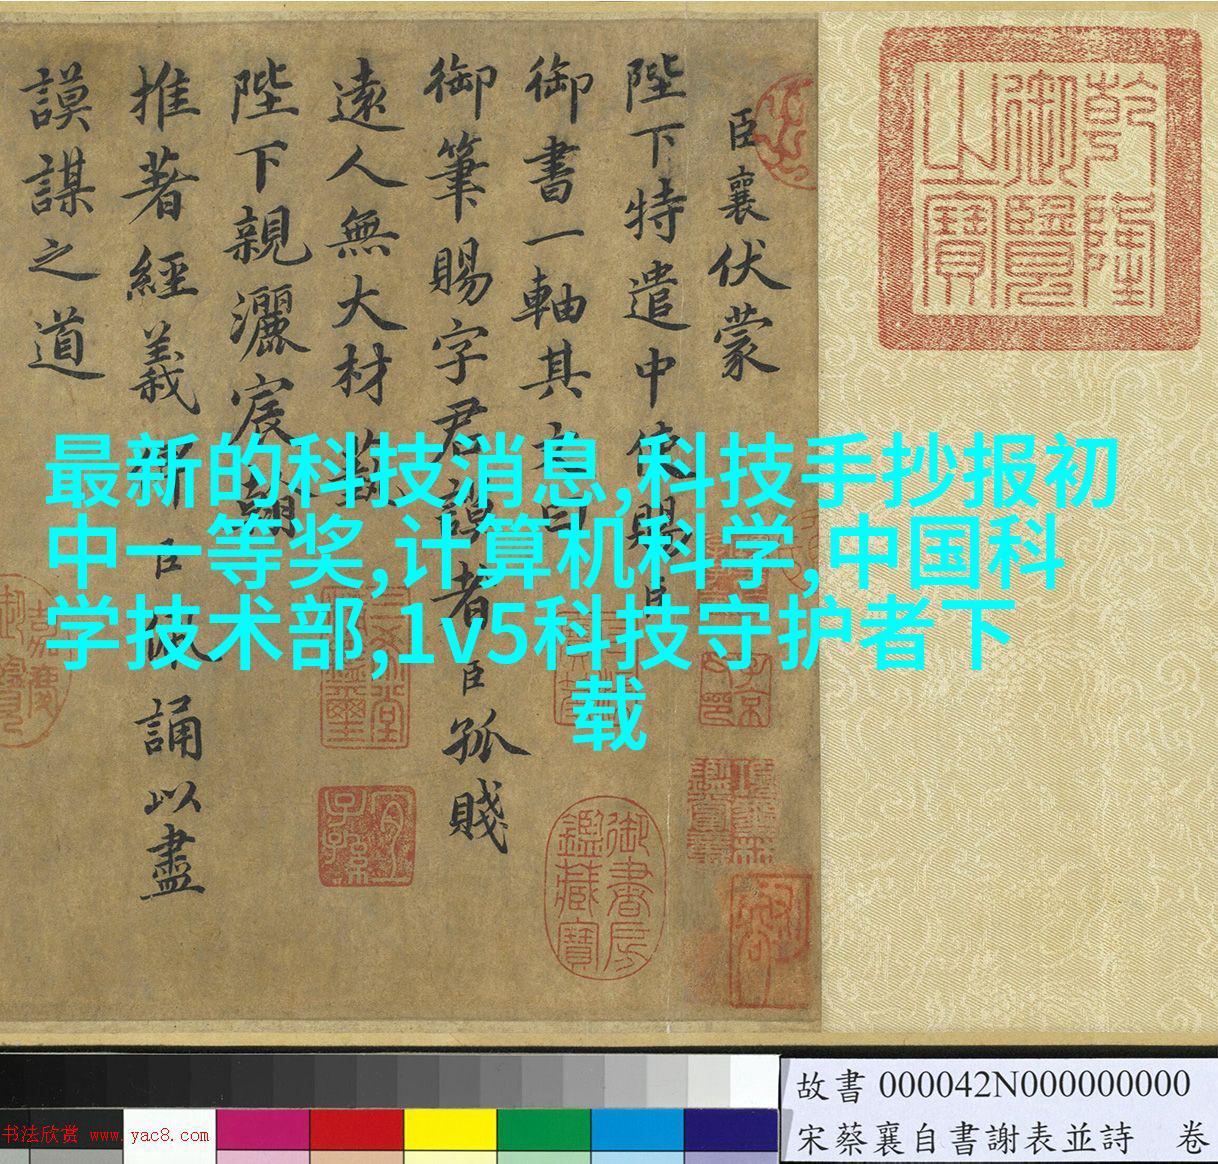 臣襄伏蒙
陛下特遣中使賜臣
御書一軸其文曰
御筆賜字君謨者臣孤賤
遠人無大材藝
陛下親灑宸翰
推著經義
臣佩誦以盡
謨謀之道
乾隆御覽之寶
最新的科技消息,科技手抄报初
中一等奖,计算机科学,中国科
学技术部,1v5科技守护者下
载
御書房鑑藏寶
宜子孫
三希堂
嘉慶御覽
故書 000042N000000000
宋蔡襄自書謝表並詩 卷
书法欣赏 www.yac8.com